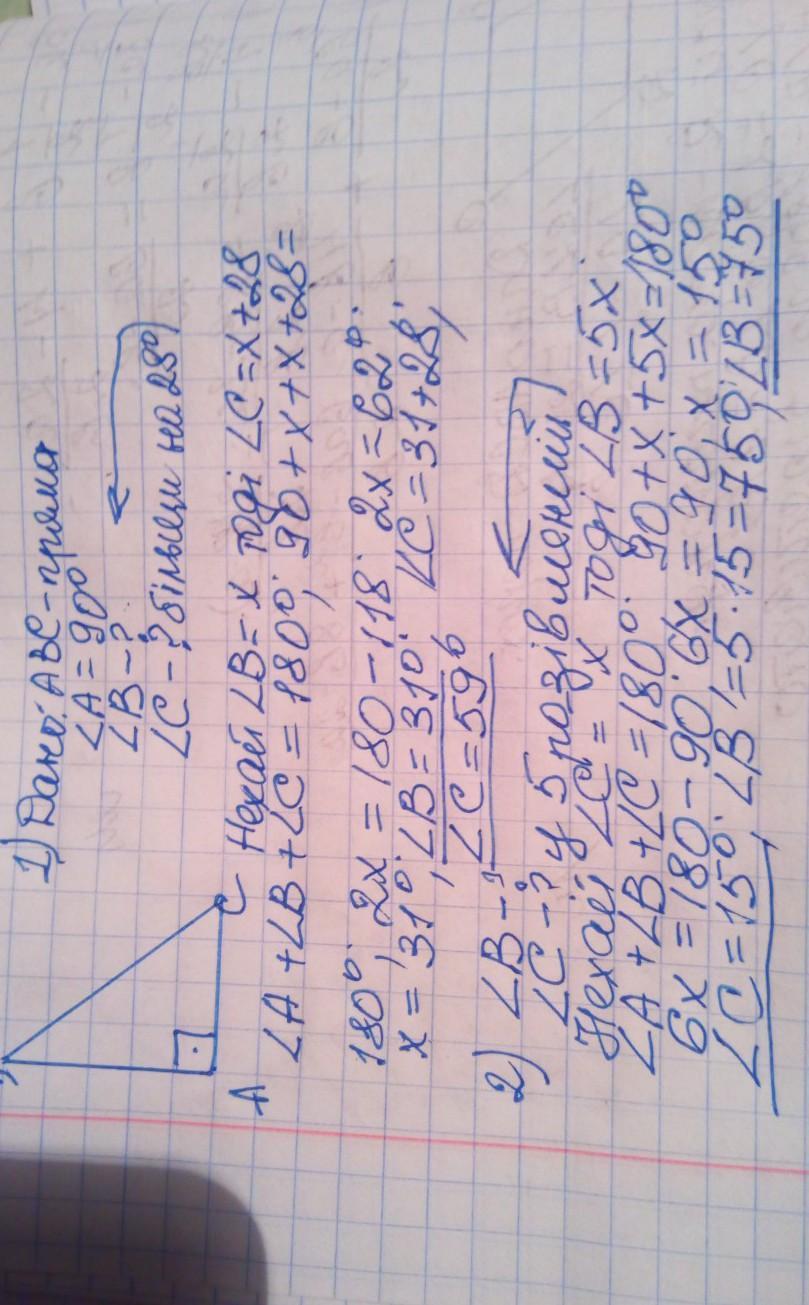 1) Дано: ABC - пряма
∠A = 90°
∠B - ?
∠C - ? більший на 28°
A
C
Нехай ∠B = x тоді ∠C = x + 28
∠A + ∠B + ∠C = 180°; 90 + x + x + 28 =
180°; 2x = 180 - 118; 2x = 62°;
x = 31°; ∠B = 31°; ∠C = 31 + 28;
∠C = 59°
2) ∠B - ?
∠C - ? у 5 разів менший
Нехай ∠C = x тоді ∠B = 5x;
∠A + ∠B + ∠C = 180°; 90 + x + 5x = 180°
6x = 180 - 90; 6x = 90, x = 15°
∠C = 15°; ∠B = 5 · 15 = 75°; ∠B = 75°